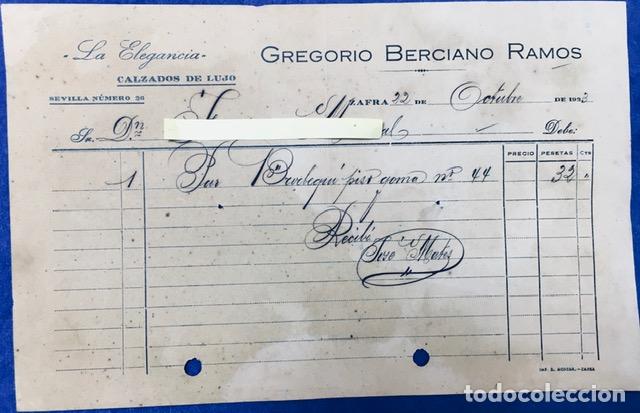 -La Elegancia-
CALZADOS DE LUJO
SEVILLA NÚMERO 26
GREGORIO BERCIANO RAMOS
ZAFRA 22 DE Octubre DE 193
Sr. Dn. Debe:
PRECIO PESETAS Cts
1 Par piso goma nº 44 32 "
Recibí
José
IMP. ZAFRA
todocoleccion
todocoleccion.net